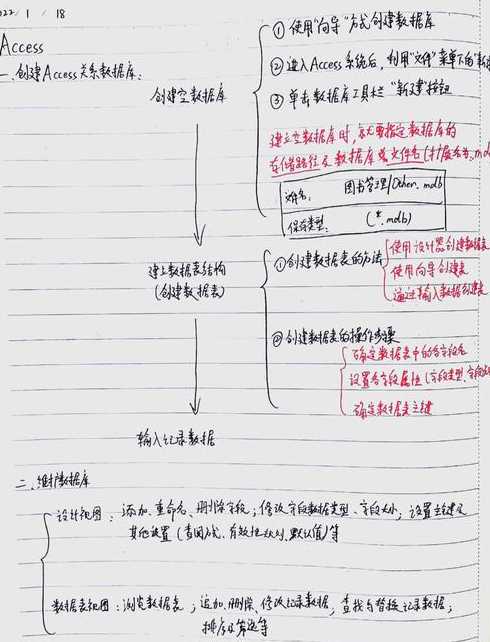 2022 / 1 / 18
Access
一、创建Access关系数据库:
创建空数据库
① 使用"向导"方式创建数据库
② 进入Access系统后,利用"文件"菜单下的"新
③ 单击数据库工具栏"新建"按钮
建立空数据库时,就要指定数据库的
存储路径及数据库或文件名(扩展名为.md
文件名: 图书管理/Other.mdb
保存类型: (*.mdb)
建立数据表结构
(创建数据表)
①创建数据表的方法
使用设计器创建数据表
使用向导创建表
通过输入数据创建表
② 创建数据表的操作步骤
确定数据表中的各字段名
设置各字段属性(字段类型、字段
确定数据表主键
输入记录数据
二、维护数据库
设计视图: 添加、重命名、删除字段;修改字段数据类型、字段大小;设置主键及
其他设置(查阅方式、有效性规则、默认值)等
数据表视图:浏览数据表;追加、删除、修改记录数据;查找与替换记录数据;
排序及筛选等